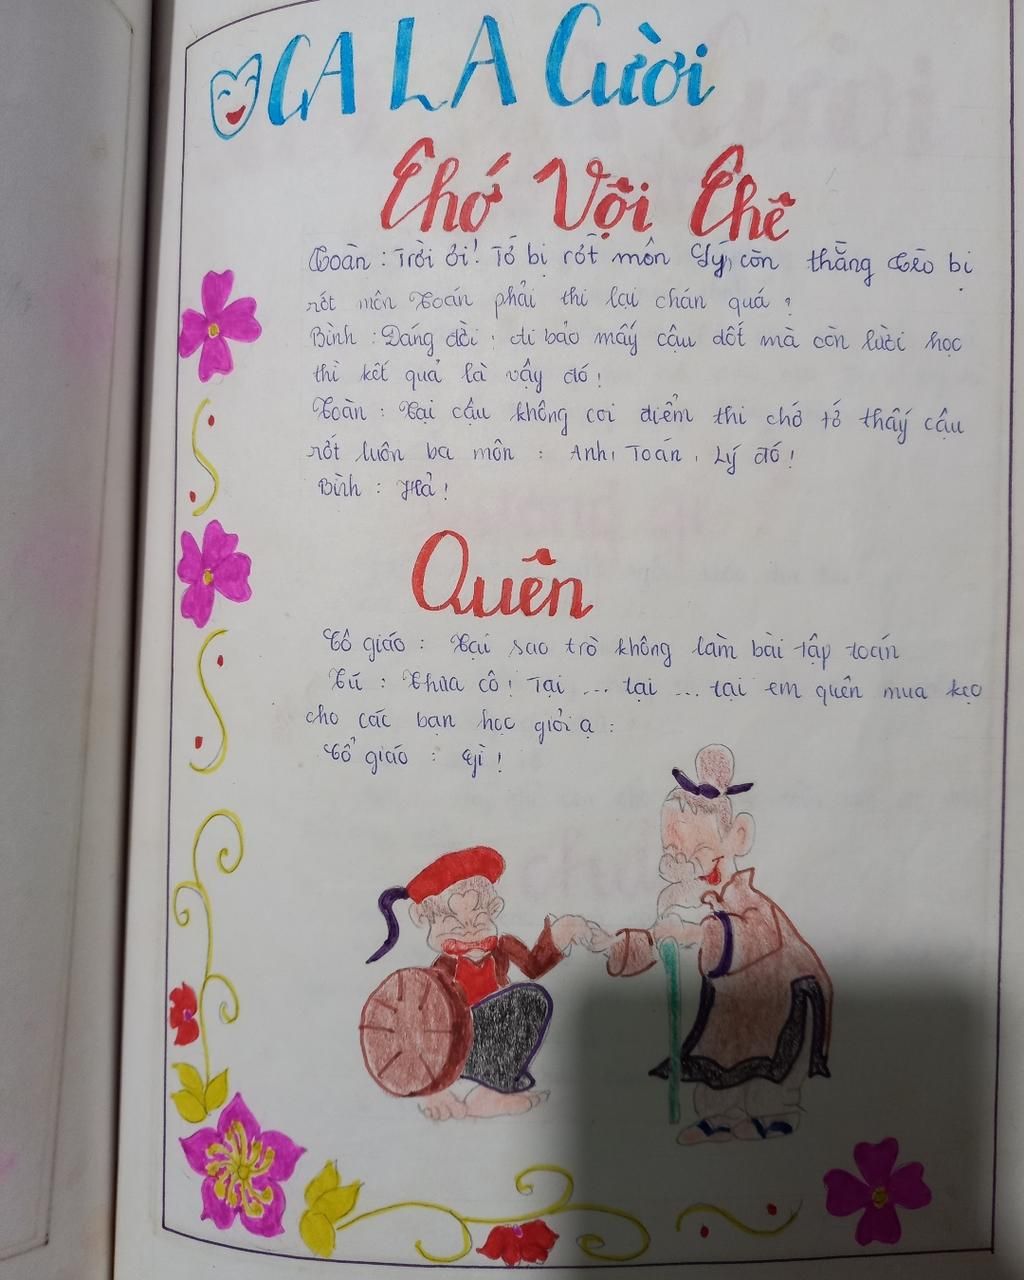 CA LA Cười
Chớ Vội Chê
Toàn : Trời ơi! Tớ bị rớt môn Lý, còn thằng Tèo bị
rớt môn Toán phải thi lại chán quá ?
Bình : Đáng đời : đi bảo mấy cậu dốt mà còn lười học
thì kết quả là vậy đó !
Toàn : Tại cậu không coi điểm thi chớ tớ thấy cậu
rớt luôn ba môn : Anh, Toán, Lý đó !
Bình : Hả !
Quên
Cô giáo : Tại sao trò không làm bài tập toán
Tú : Thưa cô ! Tại ... tại ... tại em quên mua kẹo
cho các bạn học giỏi ạ :
Cổ giáo : Gì !